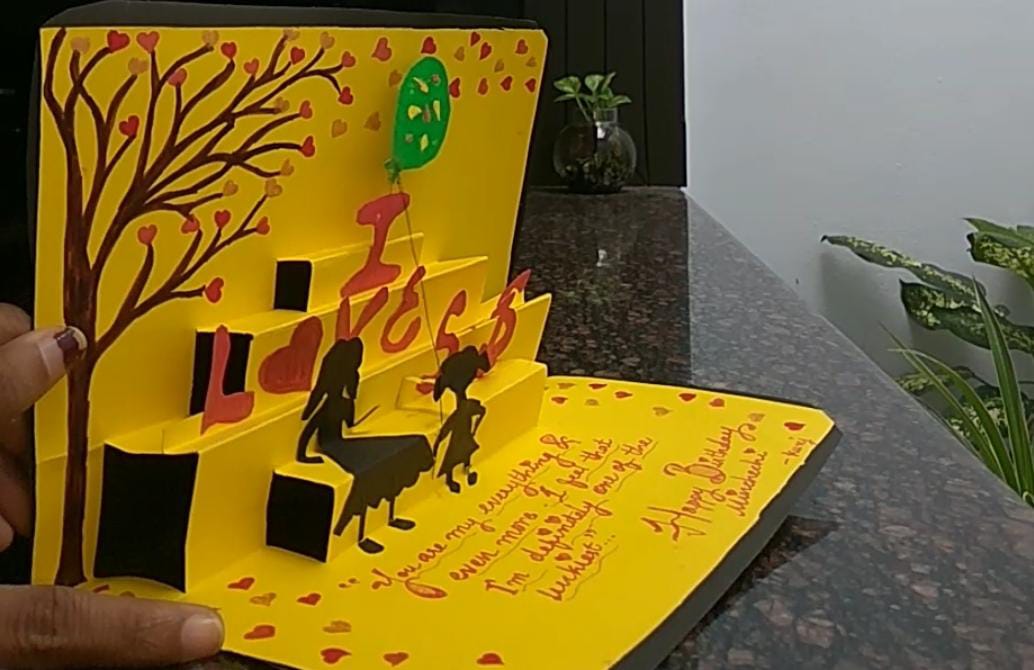 I
LOVE
"You are my everything &
even more. I feel that
I'm definitely one of the
luckiest"...
Happy Birthday